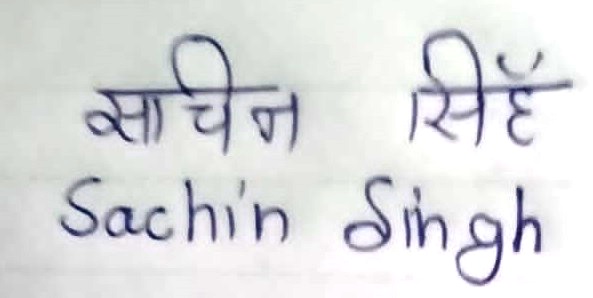 सचिन सिहँ
Sachin Singh